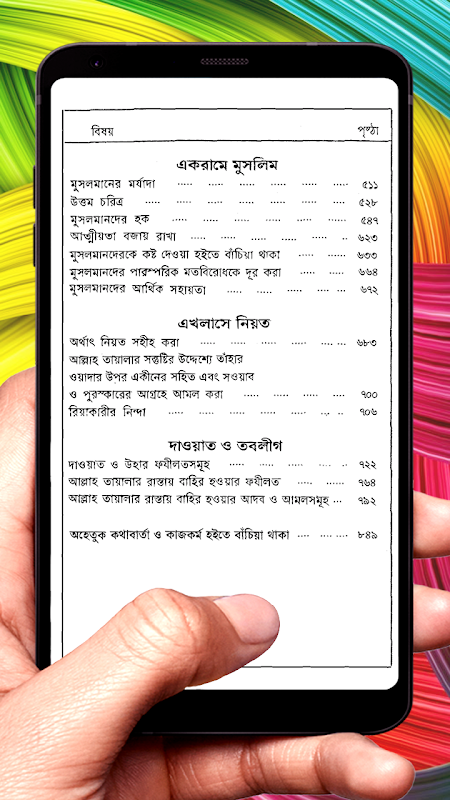 বিষয় পৃষ্ঠা
একরামে মুসলিম
মুসলমানের মর্যাদা ..... ..... ..... ..... ..... ..... ৫১১
উত্তম চরিত্র ..... ..... ..... ..... ..... ..... ..... ৫২৮
মুসলমানদের হক ..... ..... ..... ..... ..... ..... ৫৪৭
আত্মীয়তা বজায় রাখা ..... ..... ..... ..... ..... .. ৬২৩
মুসলমানদেরকে কষ্ট দেওয়া হইতে বাঁচিয়া থাকা ..... ..... ৬৩৩
মুসলমানদের পারস্পরিক মতবিরোধকে দূর করা ..... ..... ৬৬৪
মুসলমানদের আর্থিক সহায়তা ..... ..... ..... ..... ..... ৬৭২
এখলাসে নিয়ত
অর্থাৎ নিয়ত সহীহ করা ..... ..... ..... ..... ... ... ৬৮৩
আল্লাহ তায়ালার সন্তুষ্টির উদ্দেশ্যে তাঁহার
ওয়াদার উপর একীনের সহিত এবং সওয়াব
ও পুরস্কারের আগ্রহে আমল করা ..... ..... ..... ..... ৭০০
রিয়াকারীর নিন্দা ..... ..... ..... ..... ..... ..... ৭০৬
দাওয়াত ও তবলীগ
দাওয়াত ও উহার ফযীলতসমূহ ..... ..... ..... ..... ..... ৭২২
আল্লাহ তায়ালার রাস্তায় বাহির হওয়ার ফযীলত ..... ...... ৭৬৪
আল্লাহ তায়ালার রাস্তায় বাহির হওয়ার আদব ও আমলসমূহ ... ৭৯২
অহেতুক কথাবার্তা ও কাজকর্ম হইতে বাঁচিয়া থাকা .... ... ... ৮৪৯